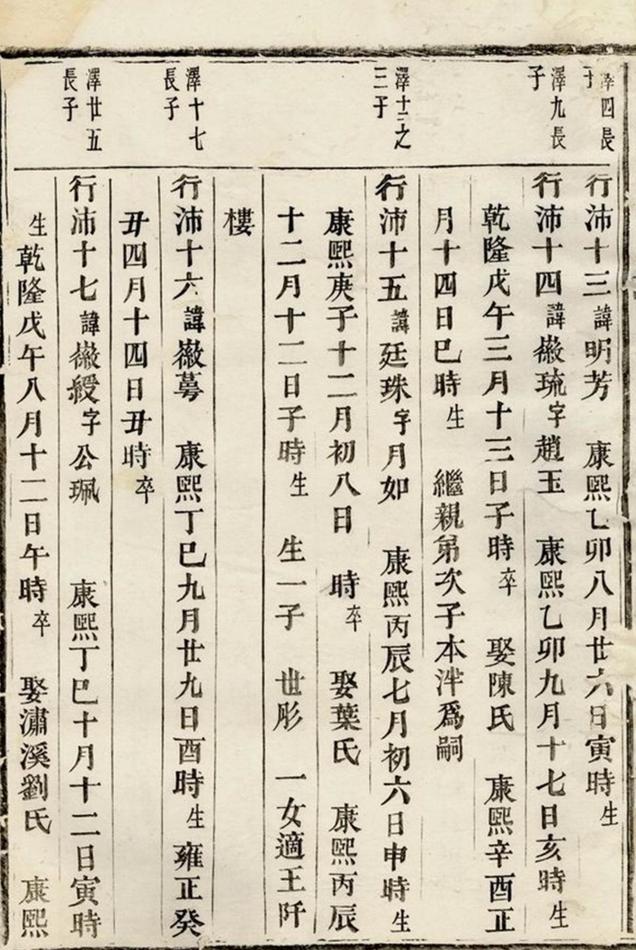 澤四長子
行沛十三諱明芳 康熙乙卯八月廿六日寅時生
澤九長子
行沛十四諱㣲琉字趙玉 康熙乙卯九月十七日亥時生
乾隆戊午三月十三日子時卒 娶陳氏 康熙辛酉正
月十四日巳時生 繼親弟次子本泮爲嗣
澤十三之三子
行沛十五諱廷珠字月如 康熙丙辰七月初六日申時生
康熙庚子十二月初八日 時卒 娶葉氏 康熙丙辰
十二月十二日子時生 生一子 世彤 一女適王阡
樓
澤十七長子
行沛十六諱㣲蕚 康熙丁巳九月廿九日酉時生 雍正癸
丑四月十四日丑時卒
澤廿五長子
行沛十七諱㣲綬字公珮 康熙丁巳十月十二日寅時
生 乾隆戊午八月十二日午時卒 娶瀟溪劉氏 康熙